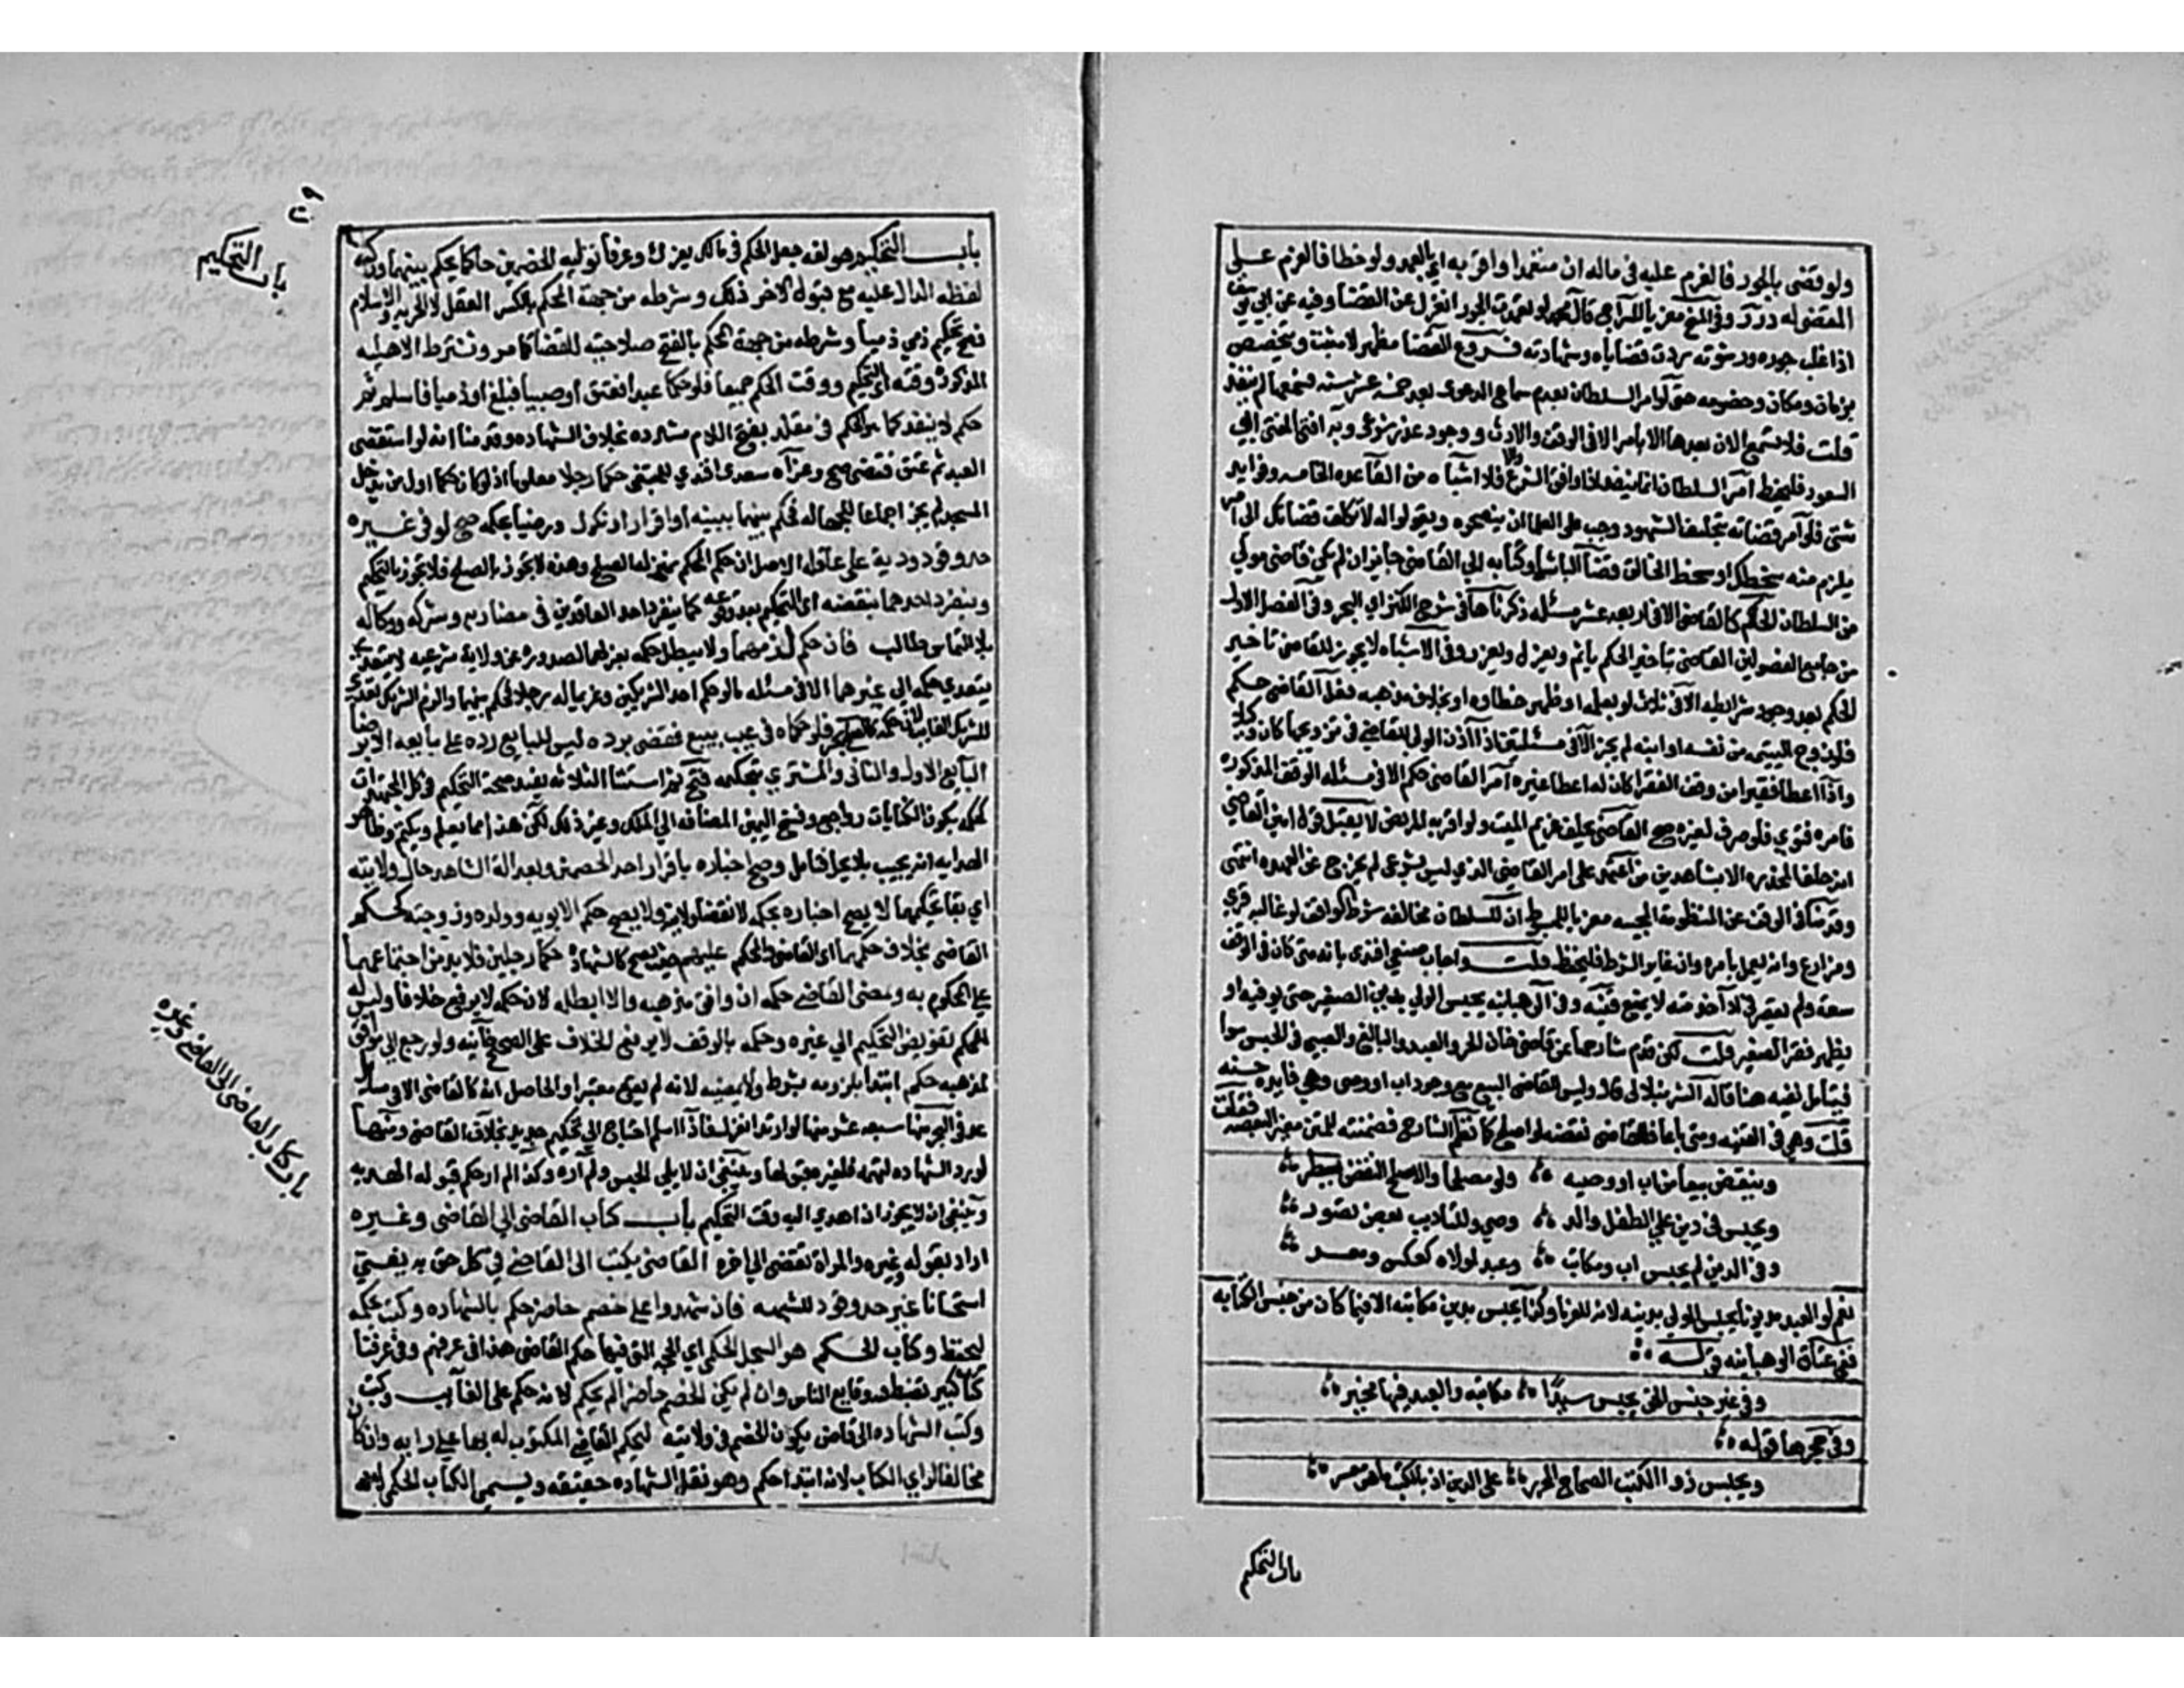 ولو قضى بالجور فالغرم عليه في ماله ان متعمدا واقر به اي بالعمد ولو خطا فالغرم على
المقضي له درر وفي المنح معزيا للسراج قال محمد لو تعمد الجور انعزل عن القضا وفيه عن ابي يوسف
اذا غلب جوره ورشوته ردت قضاياه وشهادته فروع القضا مظهر لا مثبت ويتخصص
بزمان ومكان وخصومه حتى لو امر السلطان بعدم سماع الدعوى بعد خمسة عشر سنه فسمعها لم ينفذ
قلت فلا تسمع الان بعدها الا بامر الا في الوقف والارث ووجود عذر شرعي وبه افتى المفتي ابي
السعود فليحفظ امر السلطان انما ينفذ اذا وافق الشرع والا فلا اشباه من القاعده الخامسه وفوايد
شتى فلو امر قضاته بتحليف الشهود وجب على العلما ان ينصحوه ويقولوا له لا تكلف قضاتك الى امر
يلزم منه سخطك او سخط الخالق قضا الباشا وكتابه الي القاضي جايز ان لم يكن قاضي مولي
من السلطان الحكم كالقاضي الا في اربعه عشر مسئله ذكرناها في شرح الكنز اي البحر وفي الفصل الاول
من جامع الفصولين القاضي بتاخير الحكم ياثم ويعزل ويعزر وفي الاشباه لا يجوز للقاضي تاخير
الحكم بعد وجود شرايطه الا في ثلاث لو بعلمه او ظهر خطاوه او بخلاف مذهبه فعل القاضي حكم
فلو زوج اليتيمه من نفسه او ابنه لم يجز الا في مسئلتين اذا اذن الولي للقاضي في تزويجها كان وكيلا
واذا اعطا فقيرا من وقف الفقرا كان له اعطا غيره امر القاضي حكم الا في مسئله الوقف المذكوره
فامره فتوي فلو صرف لغيره صح القاضي يحلف غريم الميت ولو اقر به المريض لا يقبل قول امين القاضي
انه حلف المخدره الا بشاهدين من اعتمد على امر القاضي الذي ليس بشرعي لم يخرج عن العهده انتهى
وقدمنا في الوقف عن المنظومة المحبيه معزيا للمبسوط ان للسلطان مخالفه شرط الواقف لو غالبه قري
ومزارع وانه يعمل بامره وان غاير الشرط فليحفظ قلت واجاب صنعي افندي بانه متى كان في الوقف
سعه ولم يقصر في اداء خدمته لا يمنع فتنبه وفي الوهبانيه يحبس الولي بدين الصغير حتى يوفيه او
يظهر فقر الصغير قلت لكن قدم شارحها عن قاضي خان الحر والعبد والبالغ والصبي في الحبس سوا
فيتامل نفيه هنا قاله الشرنبلالي قال وليس للقاضي البيع مع وجود اب او وصي وهي فايده حسنه
قلت وهي في القنيه ومتى باعا فللقاضي نقضه لو اصلح كما نظمه الشارح فضمنته للمتن مغيرا لبعضه فقلت
وينقض بيعا من اب او وصيه ولو مصلحا والاصلح النقض يسطر
ويحبس في دين علي الطفل والد وصي وللتاديب بعض تصور
وفي الدين لم يحبس اب ومكاتب وعبد لمولاه كعكس ومعسر
نعم لو العبد مديونا يحبس المولي بدينه لانه للغرما وكذا يحبس بدين مكاتبه الا فيما كان من جنس الكتابه
ففي عتاق الوهبانيه قوله
وفي غير جنس الحق يحبس سيدا مكاتبه والعبد فيها مخير
وفي حجرها قوله
ويحبس ذو الكتب الصحاح المحرر على الدين اذ بالكتب ما هو معسر
باب التحكيم
باب التحكيم
باب التحكيم هو لغه جعل الحكم في مالك لغيرك وعرفا توليه الخصمين حاكما يحكم بينهما وركنه
لفظه الدال عليه مع قبول الاخر ذلك وشرطه من جهة المحكم بالكسر العقل لا الحريه والاسلام
فصح تحكيم ذمي ذميا وشرطه من جهة المحكم بالفتح صلاحيته للقضا كما مر وتشترط الاهليه
المذكورة وقته اي التحكيم ووقت الحكم جميعا فلو حكما عبدا فعتق او صبيا فبلغ او ذميا فاسلم ثم
حكم لا ينفذ كما هو الحكم في مقلد بفتح اللام مشدده بخلاف الشهاده وقدمنا انه لو استقضى
العبد ثم عتق فقضى صح وعزاه سعدي افندي للمبتغى حكما رجلا معلوما اذ لو حكما اول من يدخل
المسجد لم يجز اجماعا للجهاله فحكم بينهما ببينه او اقرار او نكول ورضيا بحكمه صح لو في غير
حد وقود ودية على عاقله الاصل ان حكم المحكم بمنزله الصلح وهذه لا تجوز بالصلح فلا تجوز بالتحكيم
وينفرد احدهما بنقضه اي التحكيم بعد وقوعه كما ينفرد احد العاقدين في مضاربه وشركه ووكاله
بلا التماس طالب فان حكم لزمهما ولا يبطل حكمه بعزلهما لصدوره عن ولاية شرعيه ولا يتعدى
يتعدي حكمه الي غيرهما الا في مسئله ما لو حكم احد الشريكين وغريما له رجلا فحكم بينهما والزم الشريك تعدي
للشريك الغايب لان حكمه كالصلح فلو حكماه في عيب مبيع فقضى برده ليس للبايع رده على بايعه الا برضا
البايع الاول والثاني والمشتري بتحكيمه فتح ثم استثنا الثلاثه يفيد صحة التحكيم في كل المجتهدات
كحكمه بكون الكنايات رواجع وفسخ اليمين المضافه الي الملك وغير ذلك لكن هذا مما يعلم ويكتم وظاهر
الهدايه انه يجيب بلا يحل فتامل وصح اخباره باقرار احد الخصمين وبعدالة الشاهد حال ولايته
اي بقا تحكيمهما لا يصح اخباره بحكمه لانقضا ولايته ولا يصح حكمه لابويه وولده وزوجته كحكم
القاضي بخلاف حكمهما اي القاضي والمحكم عليهم حيث يصح كالشهادة حكما رجلين فلا بد من اجتماعهما
على المحكوم به ويمضي القاضي حكمه ان وافق مذهبه والا ابطله لان حكمه لا يرفع خلافا وليس له
للمحكم تفويض التحكيم الي غيره وحكمه بالوقف لا يرفع الخلاف على الصحيح خانيه ولو رجع الى موافق
لمذهبه حكم ابتدا بلزومه بشرطه ولا يمضيه لانه لم يقع معتبرا والحاصل انه كالقاضي الا في مسايل
عد في البحر منها سبعه عشر منها لو ارتد انعزل فاذا اسلم احتاج الي تحكيم جديد بخلاف القاضي ومنها
لو رد الشهاده لتهمه فلغيره قبولها وينبغي ان لا يلي الحبس ولم اره وكذا لم ار حكم قبوله الهديه
وينبغي ان لا يجوز ان اهدي اليه وقت التحكيم باب كتاب القاضي الي القاضي وغيره
اراد بقوله وغيره والمراة تقضى الي اخره القاضي يكتب الى القاضي في كل حق به يفتي
استحسانا غير حد وقود للشبهه فان شهدوا على خصم حاضر حكم بالشهاده وكتب بحكمه
ليحفظ وكتاب الحكم هو السجل الحكمي اي الحجه التي فيها حكم القاضي هذا في عرفهم وفي عرفنا
كتاب كبير تضبط فيه وقايع الناس وان لم يكن الخصم حاضرا لم يحكم لانه حكم على الغايب وكتب
وكتب الشهاده الى قاض يكون الخصم في ولايته ليحكم القاضي المكتوب له بها على رايه وان كان
مخالفا لراي الكتاب لانه ابتدا حكم وهو نقل الشهاده حقيقه ويسمى الكتاب الحكمي
باب كتاب القاضي الى القاضي وغيره